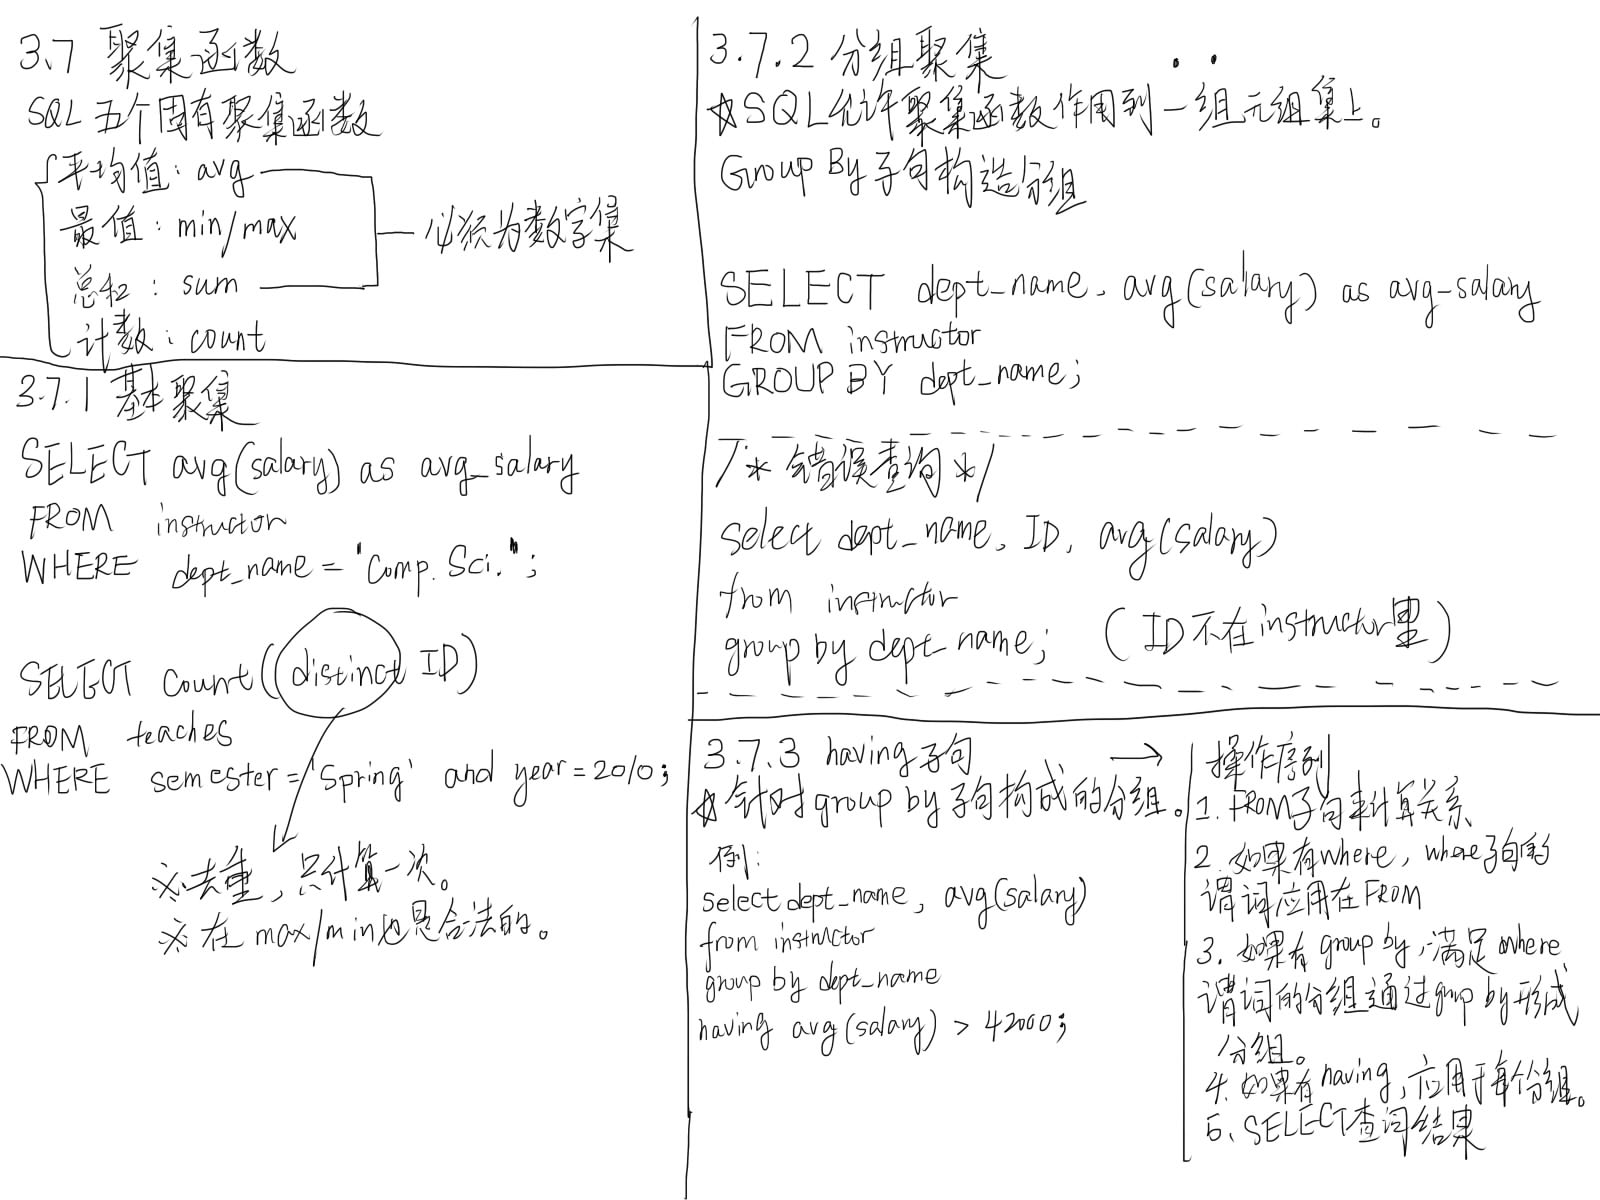 3.7 聚集函数
SQL 五个固有聚集函数
平均值：avg
最值：min/max
总和：sum
计数：count
必须为数字集
3.7.1 基本聚集
SELECT avg(salary) as avg_salary
FROM instructor
WHERE dept_name = "Comp. Sci.";
SELECT count(distinct ID)
FROM teaches
WHERE semester = 'Spring' and year = 2010;
※去重，只计算一次。
※在max/min也是合法的。
3.7.2 分组聚集
☆SQL允许聚集函数作用到一组元组集上。
Group By 子句构造分组
SELECT dept_name, avg(salary) as avg-salary
FROM instructor
GROUP BY dept_name;
/* 错误查询 */
select dept_name, ID, avg(salary)
from instructor
group by dept_name; (ID不在instructor里)
3.7.3 having子句 →
☆针对group by子句构成的分组。
例：
select dept_name, avg(salary)
from instructor
group by dept_name
having avg(salary) > 42000;
操作序列
1. FROM子句来计算关系
2. 如果有where，where子句的
谓词应用在FROM
3. 如果有group by，满足where
谓词的分组通过group by形成
分组。
4. 如果有having，应用于每个分组。
5、SELECT查询结果